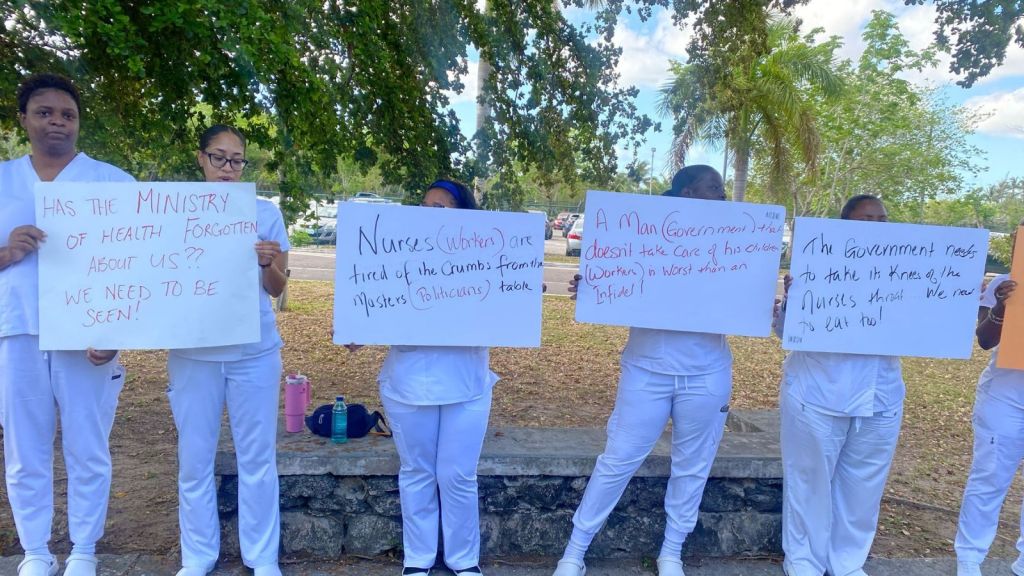 HAS THE MINISTRY
OF HEALTH FORGOTTEN
ABOUT US??
WE NEED TO BE
SEEN!
Nurses (workers) are
tired of the Crumbs from the
Masters (Politicians) table
A Man (Government) that
doesn't take Care of his Children
(Workers) is worst than an
Infidel!
The Government needs
to take its Knees of the
Nurses throat... We need
to eat too!